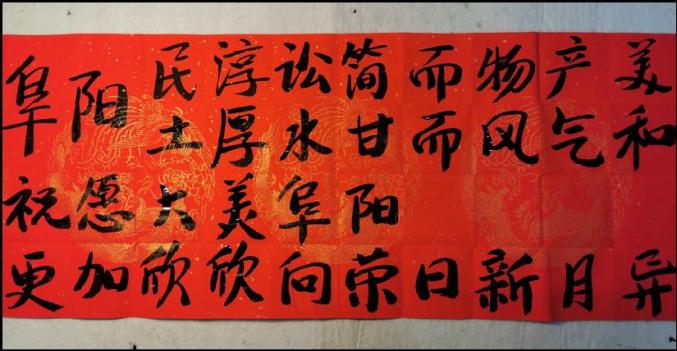 阜阳民淳讼简而物产美
土厚水甘而风气和
祝愿大美阜阳
更加欣欣向荣日新月异